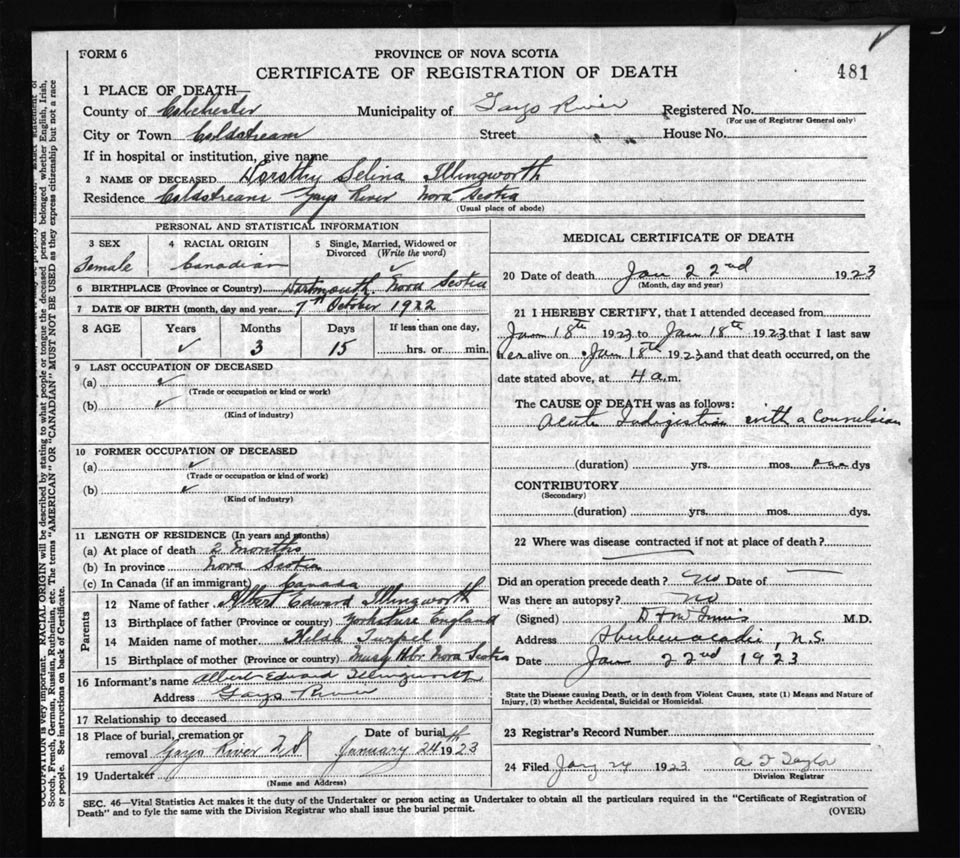 FORM 6
PROVINCE OF NOVA SCOTIA
CERTIFICATE OF REGISTRATION OF DEATH
481
1 PLACE OF DEATH—
County of Colchester Municipality of Gays River Registered No.
(For use of Registrar General only)
City or Town Coldstream Street House No.
If in hospital or institution, give name
2 NAME OF DECEASED Dorothy Selina Illingworth
Residence Coldstream Gays River Nova Scotia
(Usual place of abode)
PERSONAL AND STATISTICAL INFORMATION
3 SEX 4 RACIAL ORIGIN 5 Single, Married, Widowed or
Divorced (Write the word)
Female Canadian ✓
6 BIRTHPLACE (Province or Country) Dartmouth. Nova Scotia
7 DATE OF BIRTH (month, day and year) 7th October 1922
8 AGE Years Months Days If less than one day,
✓ 3 15 hrs. or min.
9 LAST OCCUPATION OF DECEASED
(a) ✓
(Trade or occupation or kind of work)
(b) ✓
(Kind of industry)
10 FORMER OCCUPATION OF DECEASED
(a) ✓
(Trade or occupation or kind of work)
(b) ✓
(Kind of industry)
11 LENGTH OF RESIDENCE (In years and months)
(a) At place of death 2 months
(b) In province Nova Scotia
(c) In Canada (if an immigrant) Canada
Parents
12 Name of father Albert Edward Illingworth
13 Birthplace of father (Province or country) Yorkshire England
14 Maiden name of mother Turpel
15 Birthplace of mother (Province or country) Hbr Nova Scotia
16 Informant's name Albert Edward Illingworth
Address Gays River
17 Relationship to deceased
18 Place of burial, cremation or Date of burial
removal Gays River N.S January 24th 1923
19 Undertaker
(Name and Address)
MEDICAL CERTIFICATE OF DEATH
20 Date of death Jan 22nd 1923
(Month, day and year)
21 I HEREBY CERTIFY, that I attended deceased from
Jan 18th 1923 to Jan 18th 1923 that I last saw
her alive on Jan 18th 1923 and that death occurred, on the
date stated above, at 4 a.m.
The CAUSE OF DEATH was as follows:
Acute Indigestion with a Convulsion
(duration) yrs. mos. dys
CONTRIBUTORY
(Secondary)
(duration) yrs. mos. dys.
22 Where was disease contracted if not at place of death?
Did an operation precede death? No Date of
Was there an autopsy? No
(Signed) M.D.
Address Shubenacadie, N.S.
Date Jan 22nd 1923
State the Disease causing Death, or in death from Violent Causes, state (1) Means and Nature of
Injury, (2) whether Accidental, Suicidal or Homicidal.
23 Registrar's Record Number
24 Filed Jany 24 1923 A Taylor
Division Registrar
SEC. 46—Vital Statistics Act makes it the duty of the Undertaker or person acting as Undertaker to obtain all the particulars required in the "Certificate of Registration of
Death" and to fyle the same with the Division Registrar who shall issue the burial permit.
(OVER)
OCCUPATION is very important. RACIAL ORIGIN will be described by stating to what people or tongue the deceased person belonged whether English, Irish,
Scotch, French, German, Russian, Ruthenian, etc. The terms "AMERICAN" OR "CANADIAN" MUST NOT BE USED as they express citizenship but not a race
or people. See instructions on back of Certificate.